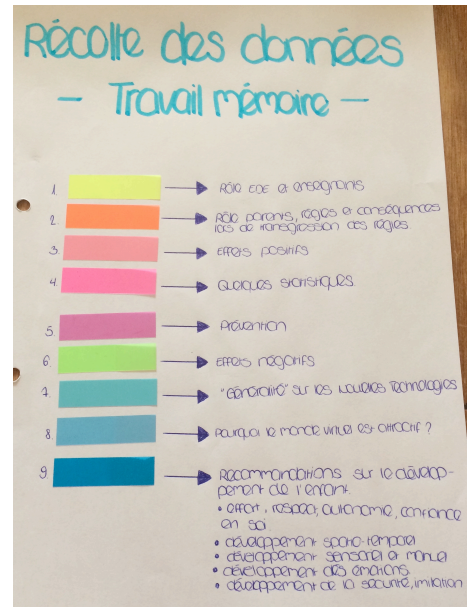 Récolte des données
- Travail mémoire -
1. Rôle EDE et enseignants
2. Rôle parents, règles et conséquences
lors de transgression des règles
3. Effets positifs
4. Quelques statistiques
5. Prévention
6. Effets négatifs
7. "Généralité" sur les nouvelles technologies
8. Pourquoi le monde virtuel est attractif ?
9. Recommandations sur le dévelop-
pement de l'enfant.
• effort, respect, autonomie, confiance
en soi
• développement spatio-temporel
• développement sensoriel et manuel
• développement des émotions
• développement de la sécurité, imitation